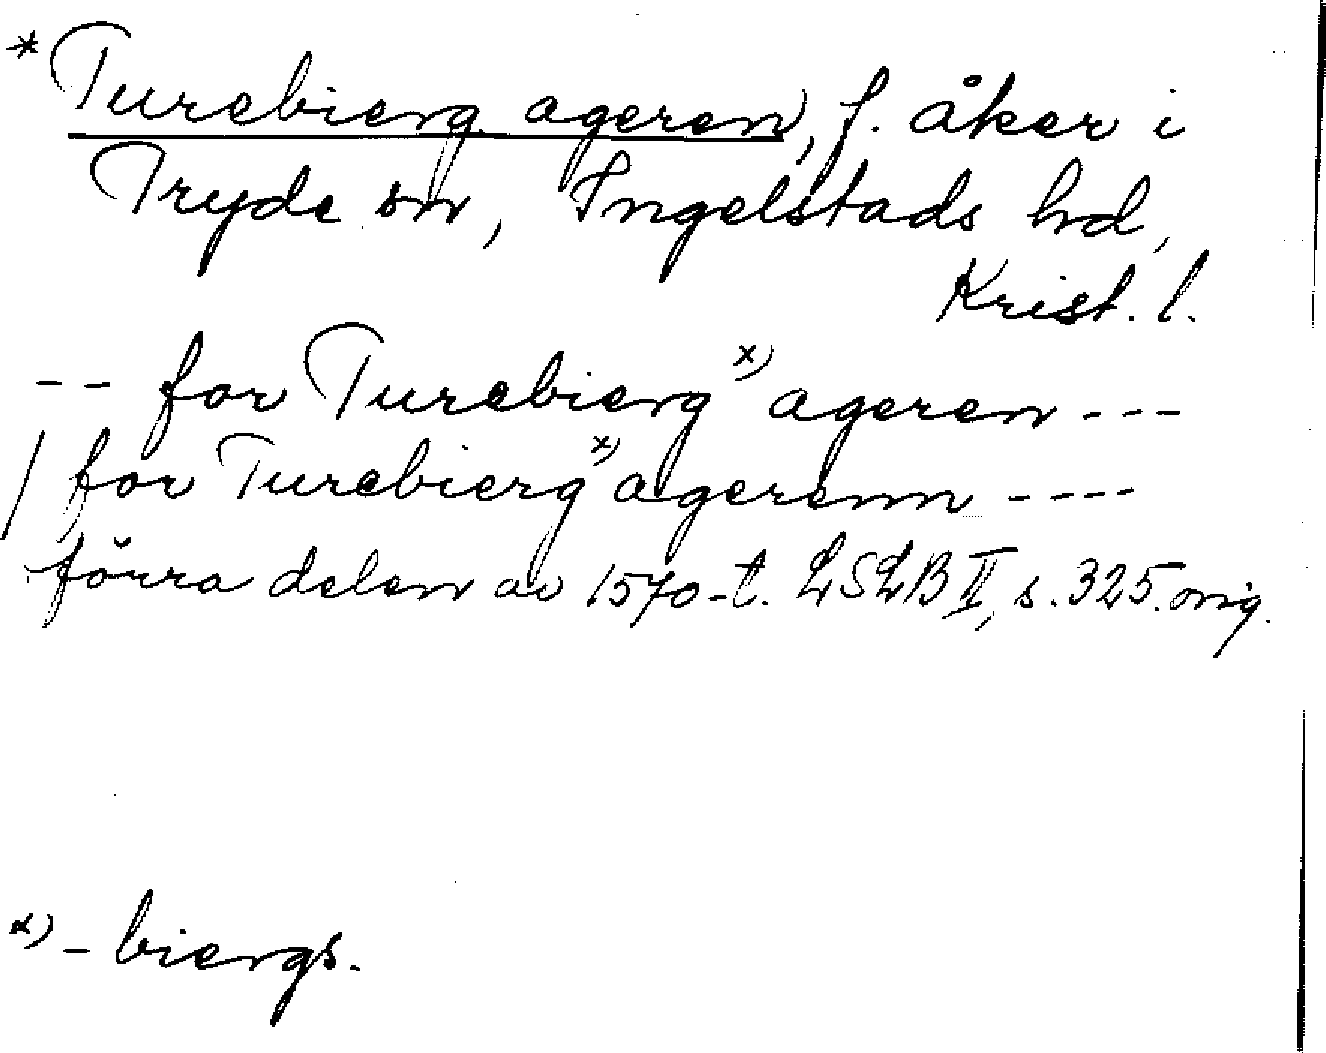 * Turebierg ageren, f. åker i
Tryde sn, Ingelstads hd,
Krist. l.
-- for Turebierg x) ageren ---
/ for Turebierg x) agerenn ----
förra delen av 1570-t. LSLB II, s. 325. orig.
x) - biergs.